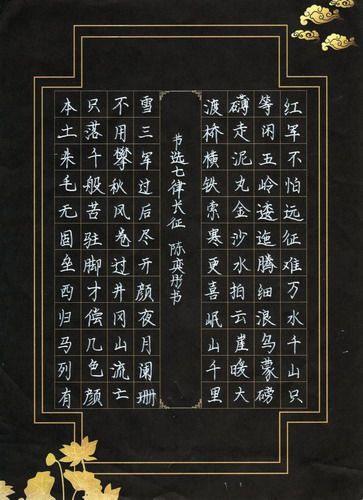 红军不怕远征难万水千山只
等闲五岭逶迤腾细浪乌蒙磅
礴走泥丸金沙水拍云崖暖大
渡桥横铁索寒更喜岷山千里
书选七律长征 陈奕彤书
雪三军过后尽开颜夜月阑珊
不用攀秋风卷过井冈山流亡
只落千般苦驻脚才偿几色颜
本土朱毛无固垒西归马列有